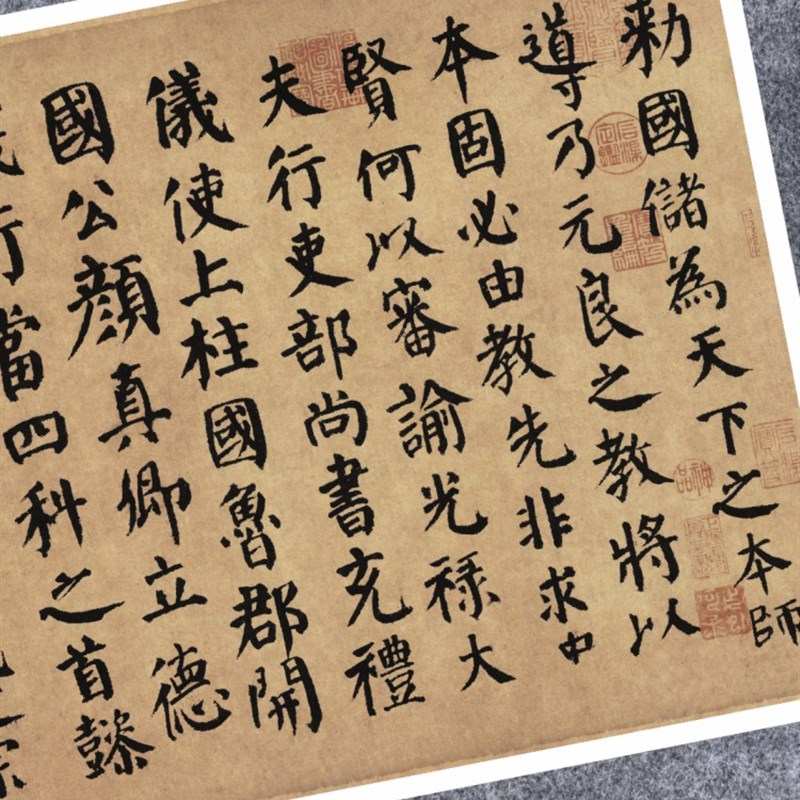 勑國儲為天下之本師
導乃元良之教將以
本固必由教先非求中
賢何以審諭光祿大
夫行吏部尚書充禮
儀使上柱國魯郡開
國公顏真卿立德
行當四科之首懿